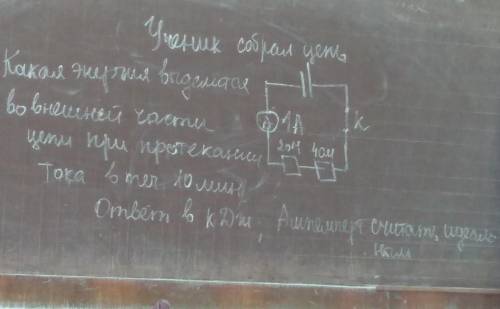 Ученик собрал цепь
Какая энергия выделяется
во внешней части
цепи при протекании
тока в теч. 10 мин
A 1А
K
2Ом 4Ом
Ответ в кДж, Амперметр считать идеаль-
ным